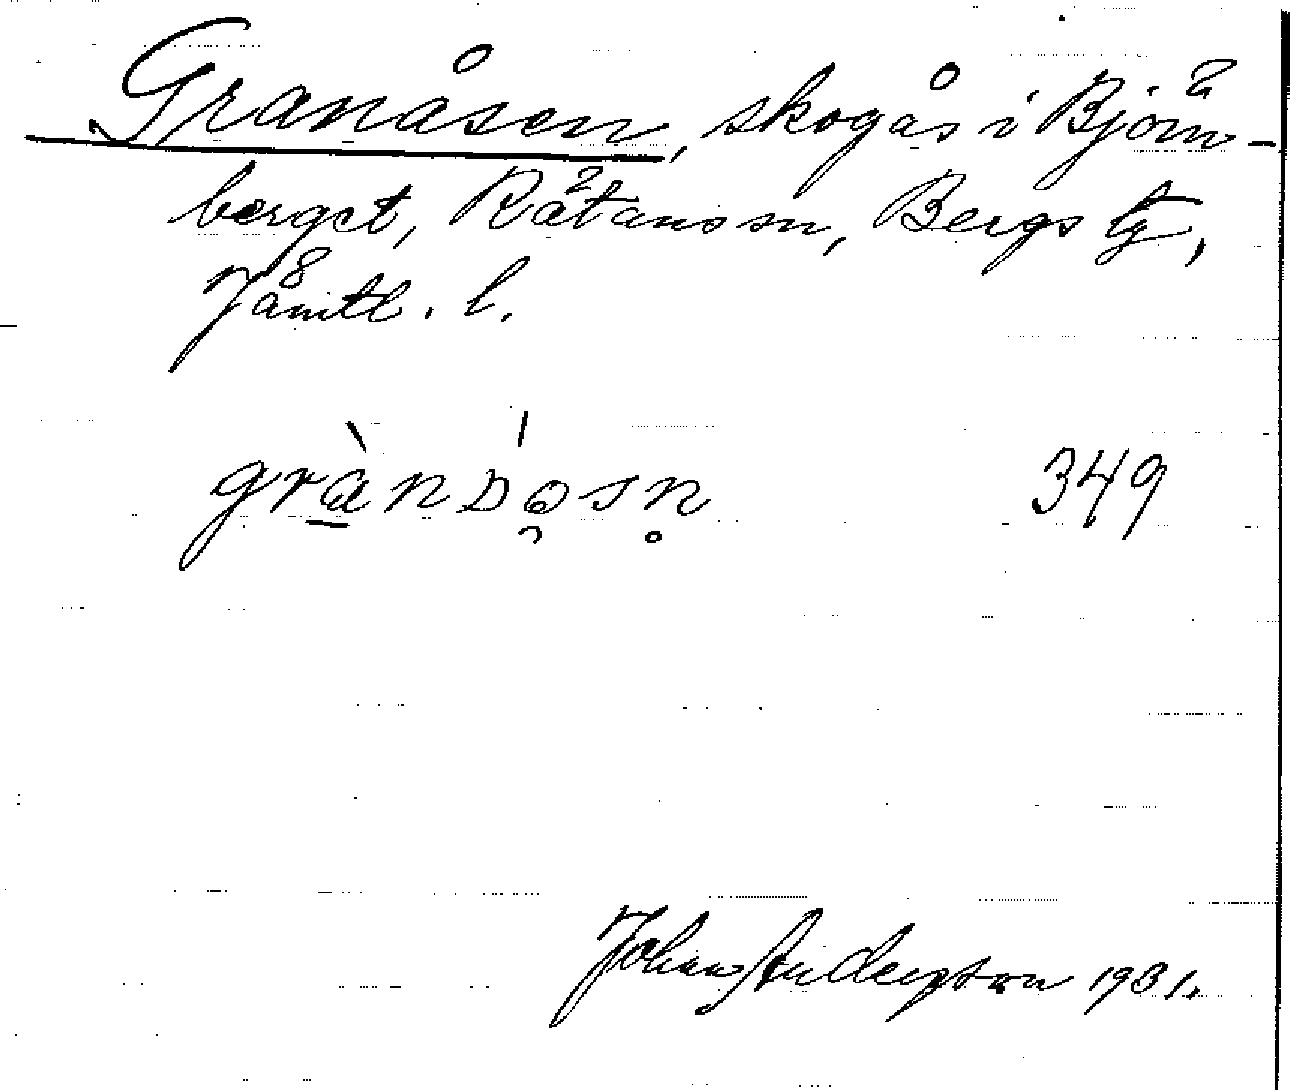 Granåsen, skogås i Björn-
berget, Rätans sn, Bergs tg,
Jämtl. l.
349
Johan Anderson 1931.